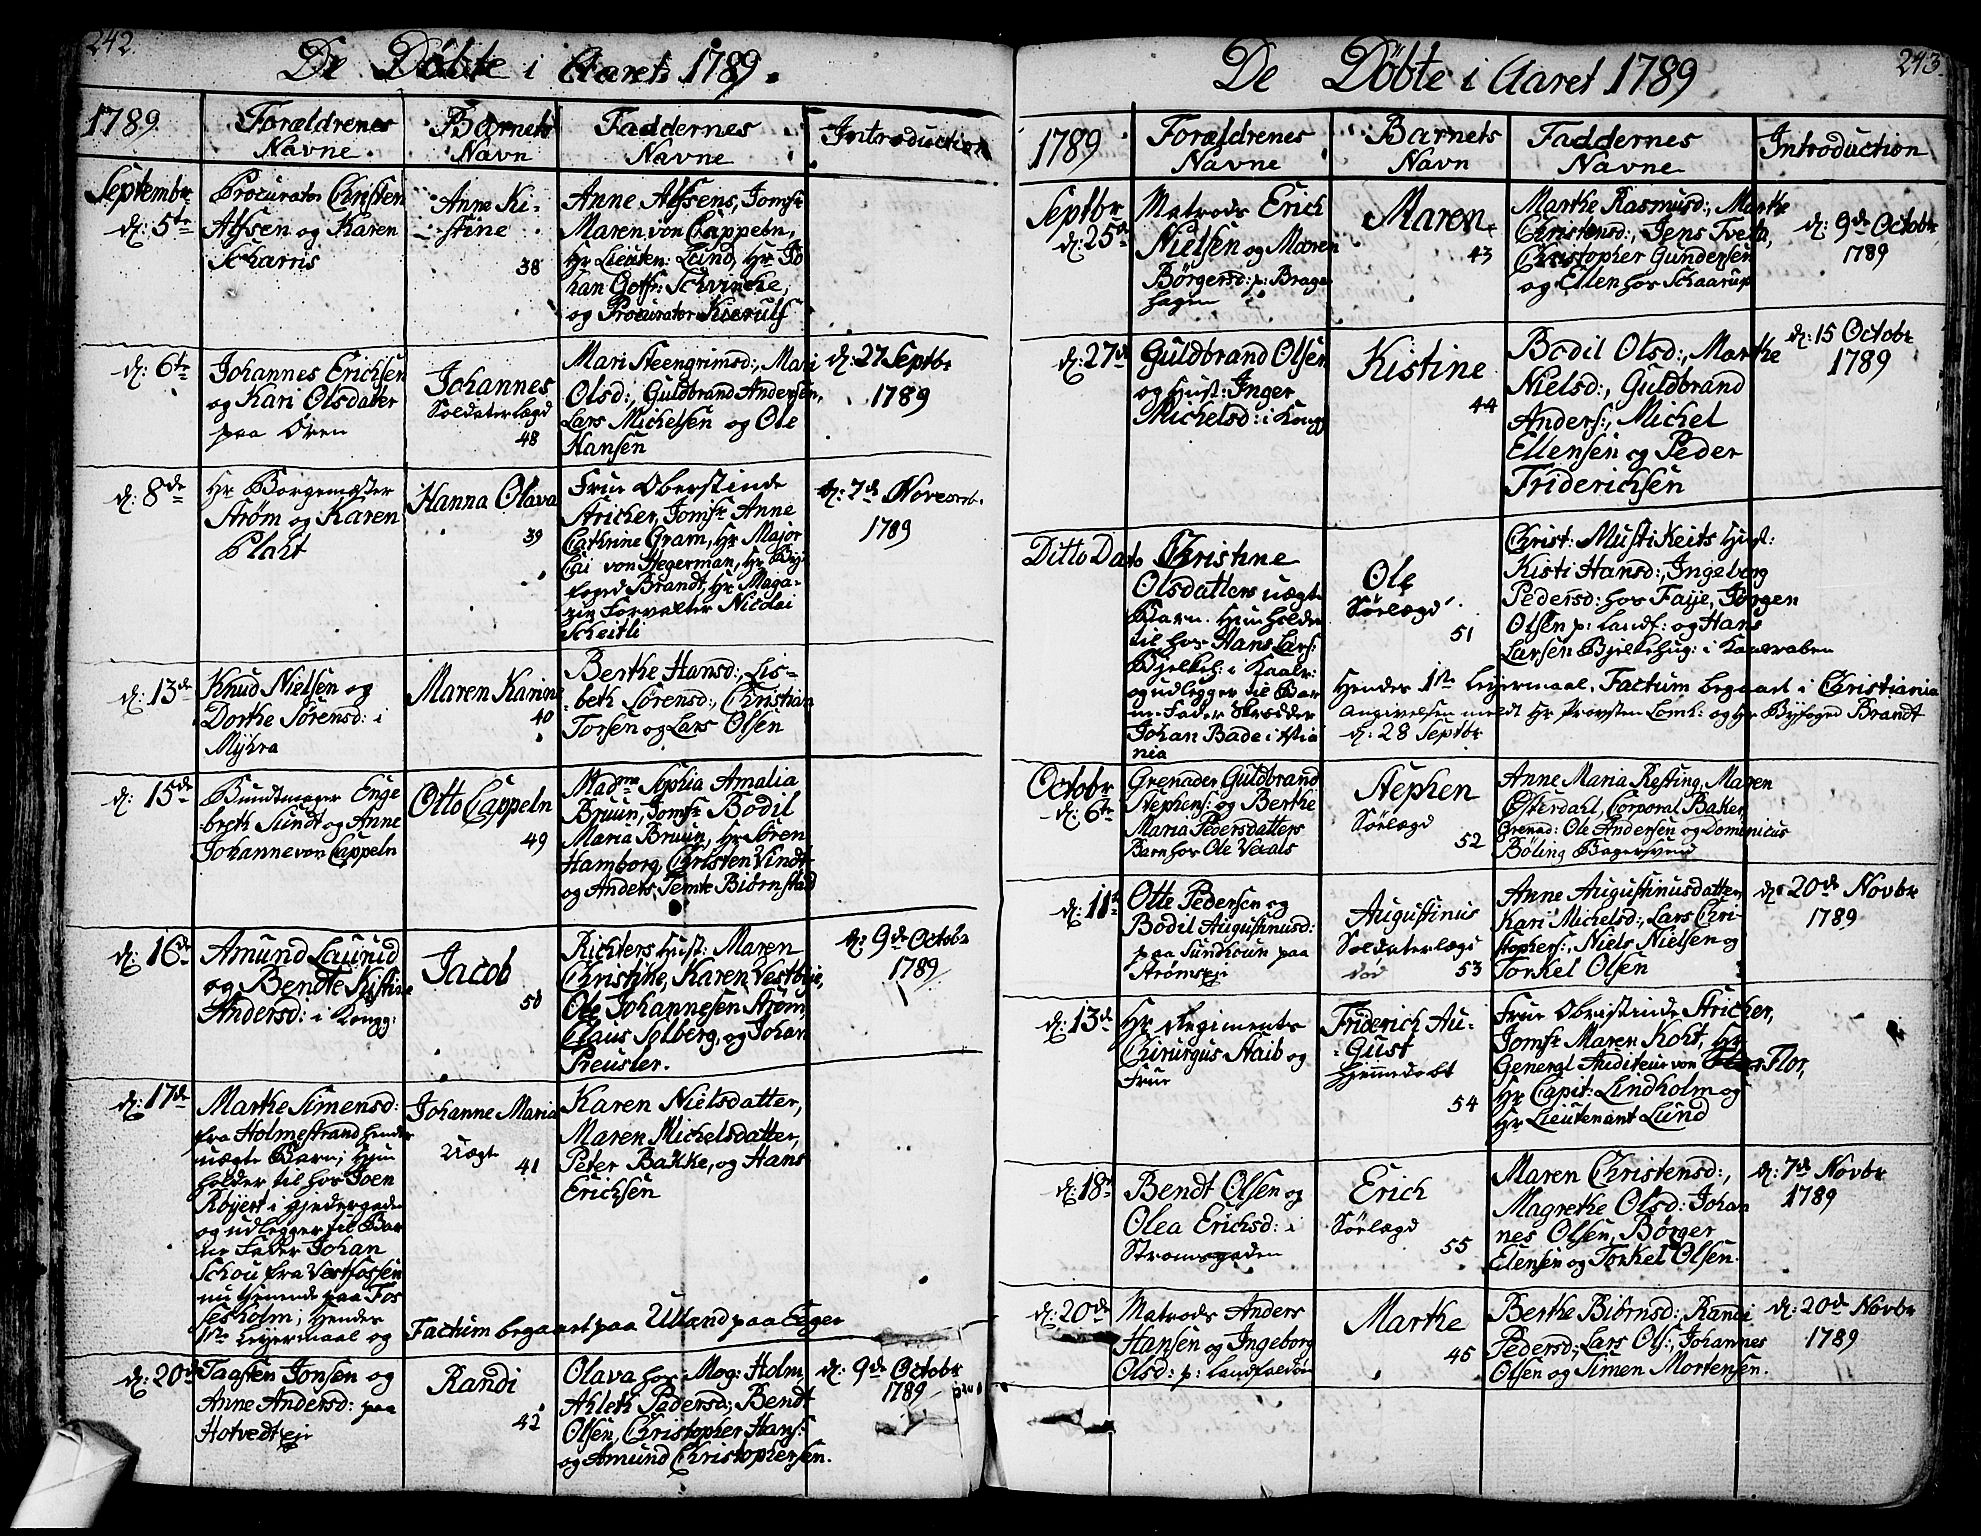 242.
De Døbte i Aaret 1789.
1789.
Forældrenes Navne.
Barnets Navn
Faddernes Navne
Introduction
Septembr
d: 5te
Procurator Christen
Alfsen og Karen
Scharris
Anne Ki-
stine
38
Anne Alfsens, Jomfr
Maren von Cappeln,
Hr Lieuten: Lund, Hr Jo
han Gotfr: Schvincke,
og Procurator Kierulf
d: 6te
Johannes Erichsen
og Kari Olsdatter
paa Øren
Johannes
Soldaterlægd
48
Mari Steengrimsd:, Mari
Olsd:, Guldbrand Andersen,
Lars Michelsen og Ole
Hansen
d: 27 Septbr
1789
d: 8de
Hr Borgemester
Strøm og Karen
Plaht
Hanna Olava
39
Frue Oberstinde
Stricker, Jomfr Anne
Cathrine Gram, Hr Major
Cai von Hegerman, Hr By-
foged Brandt, Hr Maga-
zin Forvalter Nicolai
Scheitli
d: 7de Novemb.
1789
d: 13de
Knud Nielsen og
Dorthe Sørensd: i
Myhra
Maren Karine
40
Berthe Hansd:, Lis-
beth Sørensd:, Christian
Torsen og Lars Olsen
d: 15de
Bundtmager Enge
breth Sundt og Anne
Johanne von Cappeln
Otto Cappeln
49
Madme Sophia Amalia
Bruun, Jomfr Bodil
Maria Bruun, Hr Søren
Hamborg, Christen Vindt
og Anders Temte Biørnstad
d: 16de
Amund Laurud
og Bendte Kistine
Andersd: i Kongg:
Jacob
50
Richters Hust: Maren
Christine, Karen Vestbye,
Ole Johannesen Strøm,
Claus Solberg, og Johan
Preusler.
d: 9de Octobr
1789
d: 17de
Marthe Simensd:
fra Holmestrand hendes
uægte Barn; Hun
holder til hos Joen
Røyert i Hjedergaden
og udlegger til Bar
ne Fader Johan
Schou fra Vestfossen
nu tienende paa Fos
sesholm; Hendes
1te Leyermaal og
Factum begaaet paa Ulland paa Eger
Johanne Maria
Uægt
41
Karen Nielsdatter,
Maren Michelsdatter,
Peter Bakke, og Hans
Erichsen
d: 20de
Taasten Jonsen og
Anne Andersd: paa
Hotvedt eje
Randi
42
Olava hos Mog: Holm,
Ahleth Pedersd:, Bendt
Olsen, Christopher Hans:
og Amund Christophersen.
d: 9de Octobr
1789
243.
De Døbte i Aaret 1789
1789
Forældrenes Navne
Barnets Navn
Faddernes Navne
Introduction
Septbr
d: 25de
Matrods Erich
Nielsen og Maren
Børgersd: p: Brage
hagen
Maren
43
Marthe Rasmusd:, Marthe
Christensd:, Jens Tveta,
Christopher Gundersen
og Ellen hos Schaarup
d: 9de Octobr
1789
d: 27de
Guldbrand Olsen
og Hust: Inger
Michelsd: i Kongg
Kistine
44
Bodil Olsd:, Marthe
Nielsd:, Guldbrand
Anders:, Michel
Ellensen og Peder
Friderichsen
d: 15 Octobr
1789
Ditto Dato
Christine
Olsdatters uægte
Barn. Hun holder
til hos Hans Lars:
Bjelkeh: i Kaalr:
og udlegger til Bar
ne Fader Skrædder
Johan Bade i Xstia
nia
Ole
Søelægd
51
Christ: Musti Keits Hust:
Kisti Hansd:, Ingeborg
Pedersd: hos Faye, Jørgen
Olsen p: Landf: og Hans
Larsen Bjelkehug: i Kaalraben
Hendes 1ste Leyermaal, Factum begaaet i Christiania
Angivelsen meldt Hr Provsten Lomh: og Hr Byfoged Brandt
d: 28 Septbr
Octobr
d: 6te
Grenader Guldbrand
Stephens: og Berthe
Maria Pedersdatters
Barn hos Ole Verals
Stephen
Søelægd
52
Anne Maria Resting, Maren
Østerdahl, Corporal Bakker
Grenad: Ole Andersen og Domenicus
Bøling Bagersvend
d: 11te
Otte Pedersen og
Bodil Augustinusd:
paa Sundicun paa
Strømseje
Augustinus
Soldaterlægd
død 53
Anne Augustinusdatter,
Kari Michelsd:, Lars Chri-
stophers:, Niels Nielsen og
Torkel Olsen
d: 20de Novbr
1789
d: 13de
Hr Regiments
Chirurgus Staib og
Frue
Friderich Au-
gust
Hjemmedøbt
54
Frue Obristinde Stricker,
Jomfr Maren Koht, Hr
General Auditeur von Flor,
Hr Capit: Lindholm og
Hr Lieutenant Lund
d: 18de
Bendt Olsen og
Olea Erichsd: i
Strømsgaden
Erich
Søelægd
55
Maren Christensd:,
Magrethe Olsd: Johan
nes Olsen, Børger
Elensen og Torkel Olsen.
d: 7de Novbr
1789
d: 20de
Matrods Anders
Hansen og Ingeborg
Olsd: p: Landfaldøen
Marthe
45
Berthe Biørnsd:, Randi
Pedersd:, Lars Ols:, Johannes
Olsen og Simen Mortensen.
d: 20de Novbr
1789